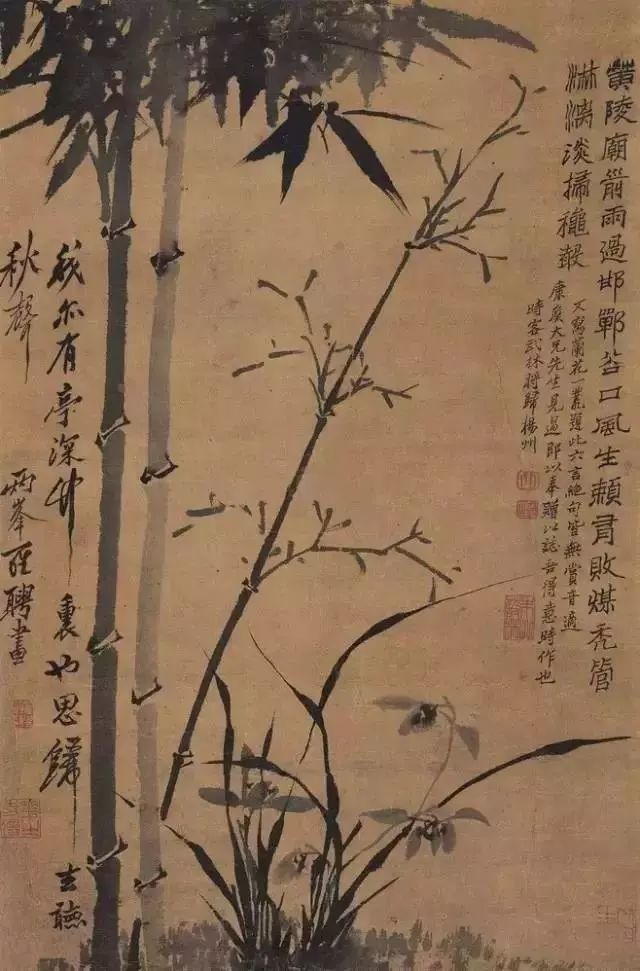 黃陵廟前雨過邯鄲谷口風生賴有敗煤禿管
淋漓淡掃龝聲
又寫蘭花一叢題此六言絶句皆無賞音適
康矦大兄先生見過即以奉贈以誌吾得意時作也
時客武林將歸揚州
我亦有亭深竹裏也思歸去聽
秋聲
兩峯羅聘畫